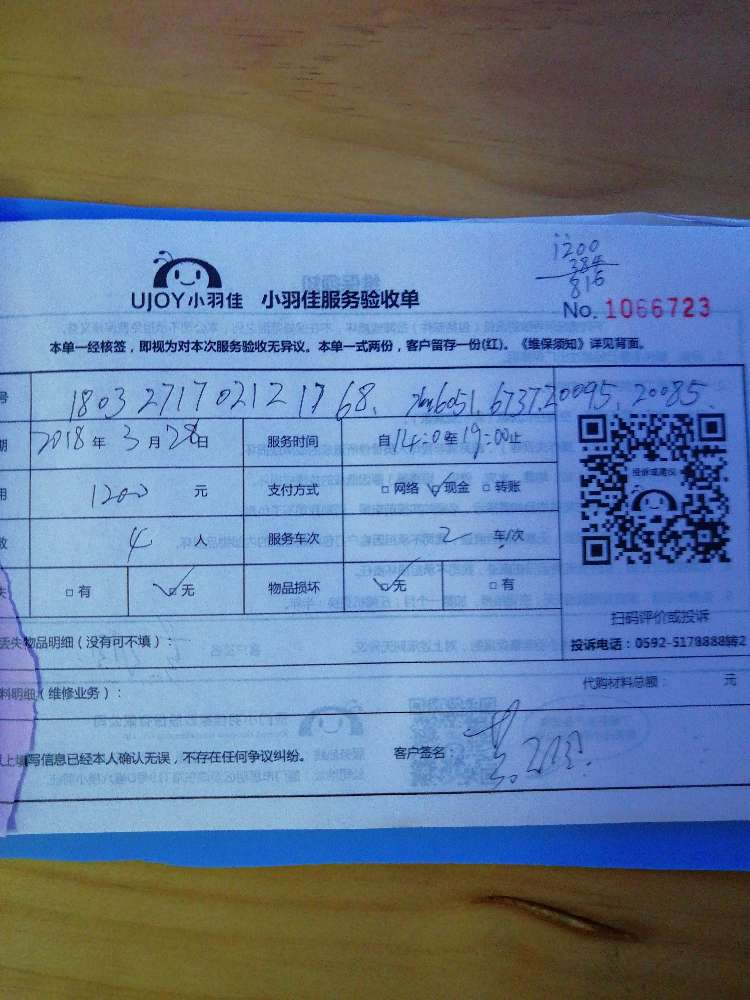 1200
384
816
UJOY小羽佳 小羽佳服务验收单
No. 1066723
本单一经核签，即视为对本次服务验收无异议。本单一式两份，客户留存一份(红)。《维保须知》详见背面。
号 1803271702121768. 6051.6737.20095.20085
期 2018年3月28日 服务时间 自14:0至19:00止
用 1200 元 支付方式 □网络 ☑现金 □转账
数 4 人 服务车次 2 车/次
失 □有 ☑无 物品损坏 ☑无 □有
投诉或建议
扫码评价或投诉
丢失物品明细（没有可不填）： 投诉电话：0592-5178888转2
料明细（维修业务）： 代购材料总额： 元
以上填写信息已经本人确认无误，不存在任何争议纠纷。 客户签名：